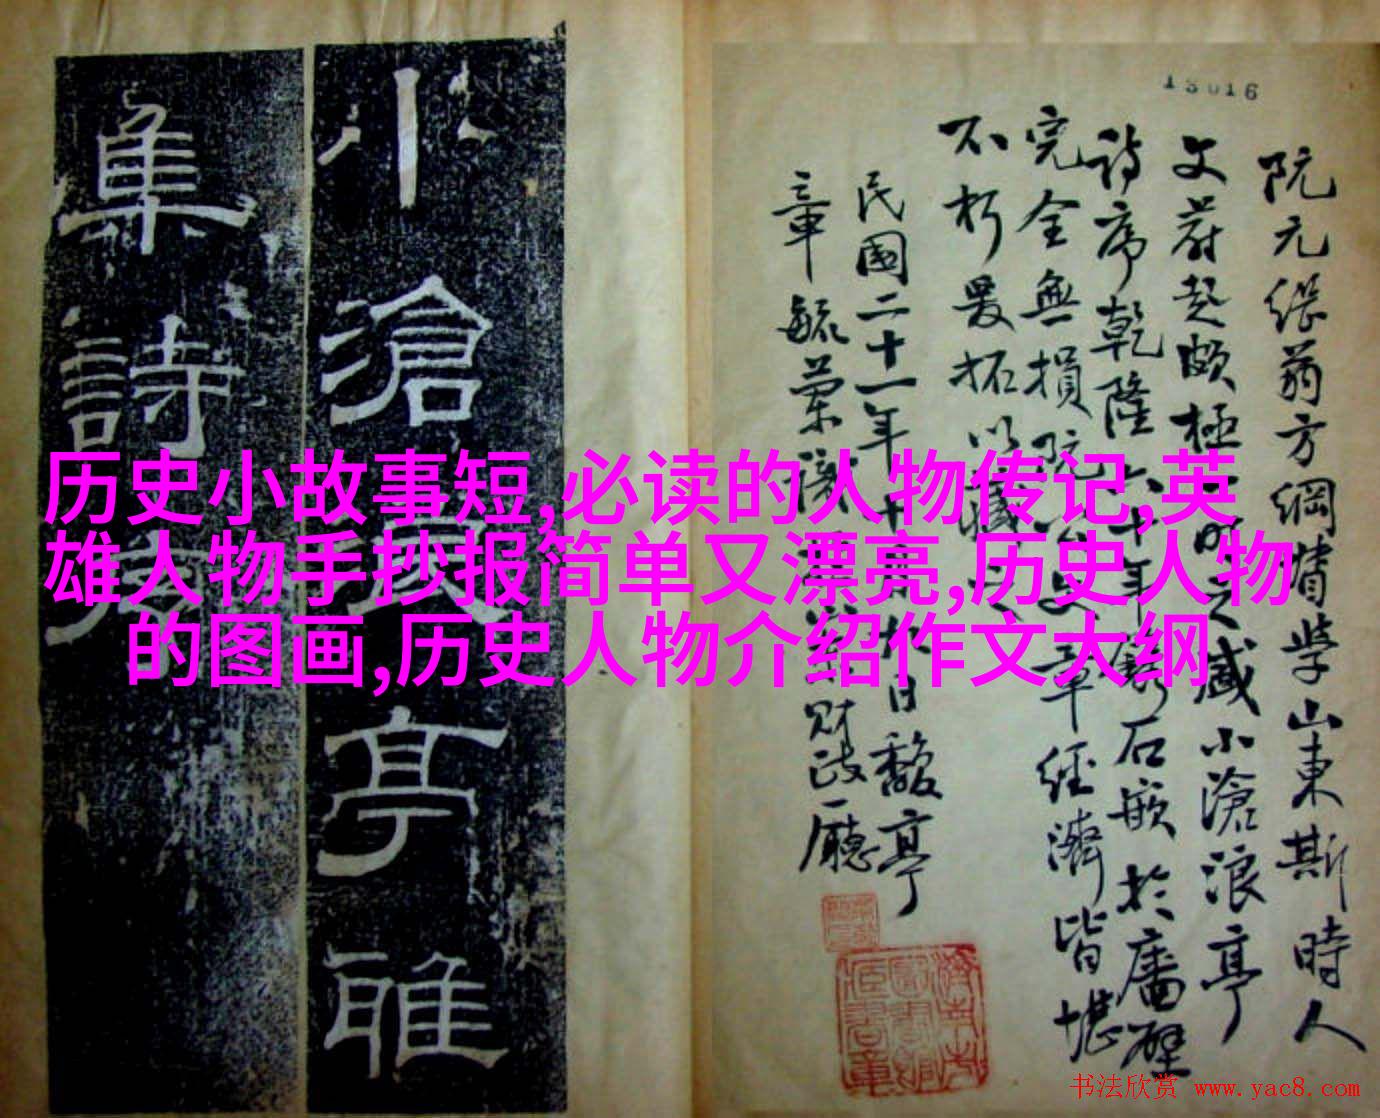 小滄浪亭雅
集詩序
13016
阮元継翁方綱督學山東斯時人
文蔚起頗極一時之盛小滄浪亭
詩序乾隆六十年鐫石嵌於廡壁
完全無損阮公文章經濟皆堪
不朽爰拓以藏之
民國二十一年十月八日馥亭
章毓蘭識 財政廳
历史小故事短,必读的人物传记,英
雄人物手抄报简单又漂亮,历史人物
的图画,历史人物介绍作文大纲
书法欣赏 www.yac8.com